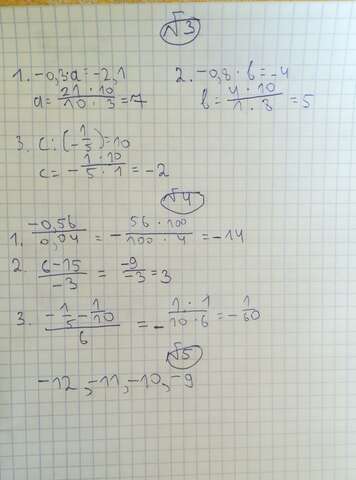 √3
1. -0,3·a = -2,1
a = 21 · 10 / 10 · 3 = 7
2. -0,8 · b = -4
b = 4 · 10 / 1 · 8 = 5
3. c : (-1/5) = 10
c = - 1 · 10 / 5 · 1 = -2
√4
1. -0,56 / 0,04 = - 56 · 100 / 100 · 4 = -14
2. 6-15 / -3 = -9 / -3 = 3
3. -1/5 - 1/10 / 6 = - 1 · 1 / 10 · 6 = - 1/60
√5
-12, -11, -10, -9